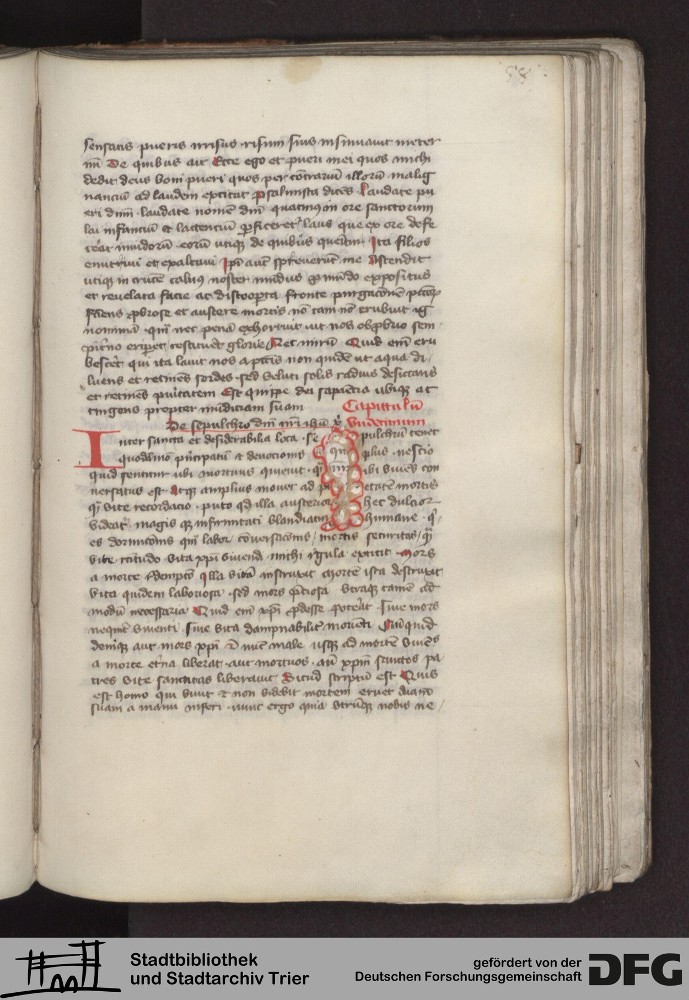 58
sensatis pueris irrisus risum suis insinuavit mater
De quibus ait Ecce ego et pueri mei quos michi
dedit deus boni pueri quos per contrariū illorū malig
nanciū ad laudem excitat psalmista dicēs Laudate pu
eri dnm laudate nomē dnī quatinus in ore sanctorum
lau infanciū et lactenciū pficeret laus que ex ore defe
cerat invidorū eorū utiq de quibus querim Ita filios
enutrivi et exaltavi Ipī aut spreverūt me Ascendit
utiq in crucē calvus noster mūdus p mūdo expositus
et revelata facie ac discoopta fronte purgacōnē pctōr
faciens pbrose et austere mortis nō tam nō erubuit ig
nominiā qm nec penā exhorruit ut nos obpbrio sem
pitno eriperet restitueret glorie Nec mirū Quid em eru
besceret qui ita lavit nos a pctis non quidē ut aqua di
luens et retinēs sordes sed veluti solis radius desiccans
et retinēs puritatem Est quippe dei sapientia ubique at
tingens propter mundiciam suam Capitulū
De sepulchro dnī nrī ihū x Undecimum
Inter sancta et desiderabilia loca se pulchrū tenet
quodāmo principatū et devocionis plus nescio
quid sentitur ubi mortuus quievit q ubi vivēs con
versatus est atq amplius movet ad pi etatē mortis
q vite recordacio puto qd illa austerior hec dulcior
videat magis q infirmitati blandiatur humane q
es dormicōnis qm labor cōversacōnis mortis securitas q
vite rctitudo vita xpī vivendi michi regula extitit mors
a morte redempcio illa vitā instruxit mortē ista destruxit
Vita quidem laboriosa sed mors pciosa utraq tamē ad
modū necessaria Quid em xpī pdesse poterat sive mors
nequit viventi sive vita dampnabilit morienti Nūquid
deniq aut mors xpī et nunc male usq ad mortē vivēs
a morte etna liberat aut mortuos an xpm sanctos pa
tres vite sanctitas liberavit Sicut scriptū est Quis
est homo qui vivit et non videbit mortem eruet aīam
suam a manu inferi nunc ergo quia utrūq nobis ne
Stadtbibliothek
und Stadtarchiv Trier
gefördert von der
Deutschen Forschungsgemeinschaft
DFG